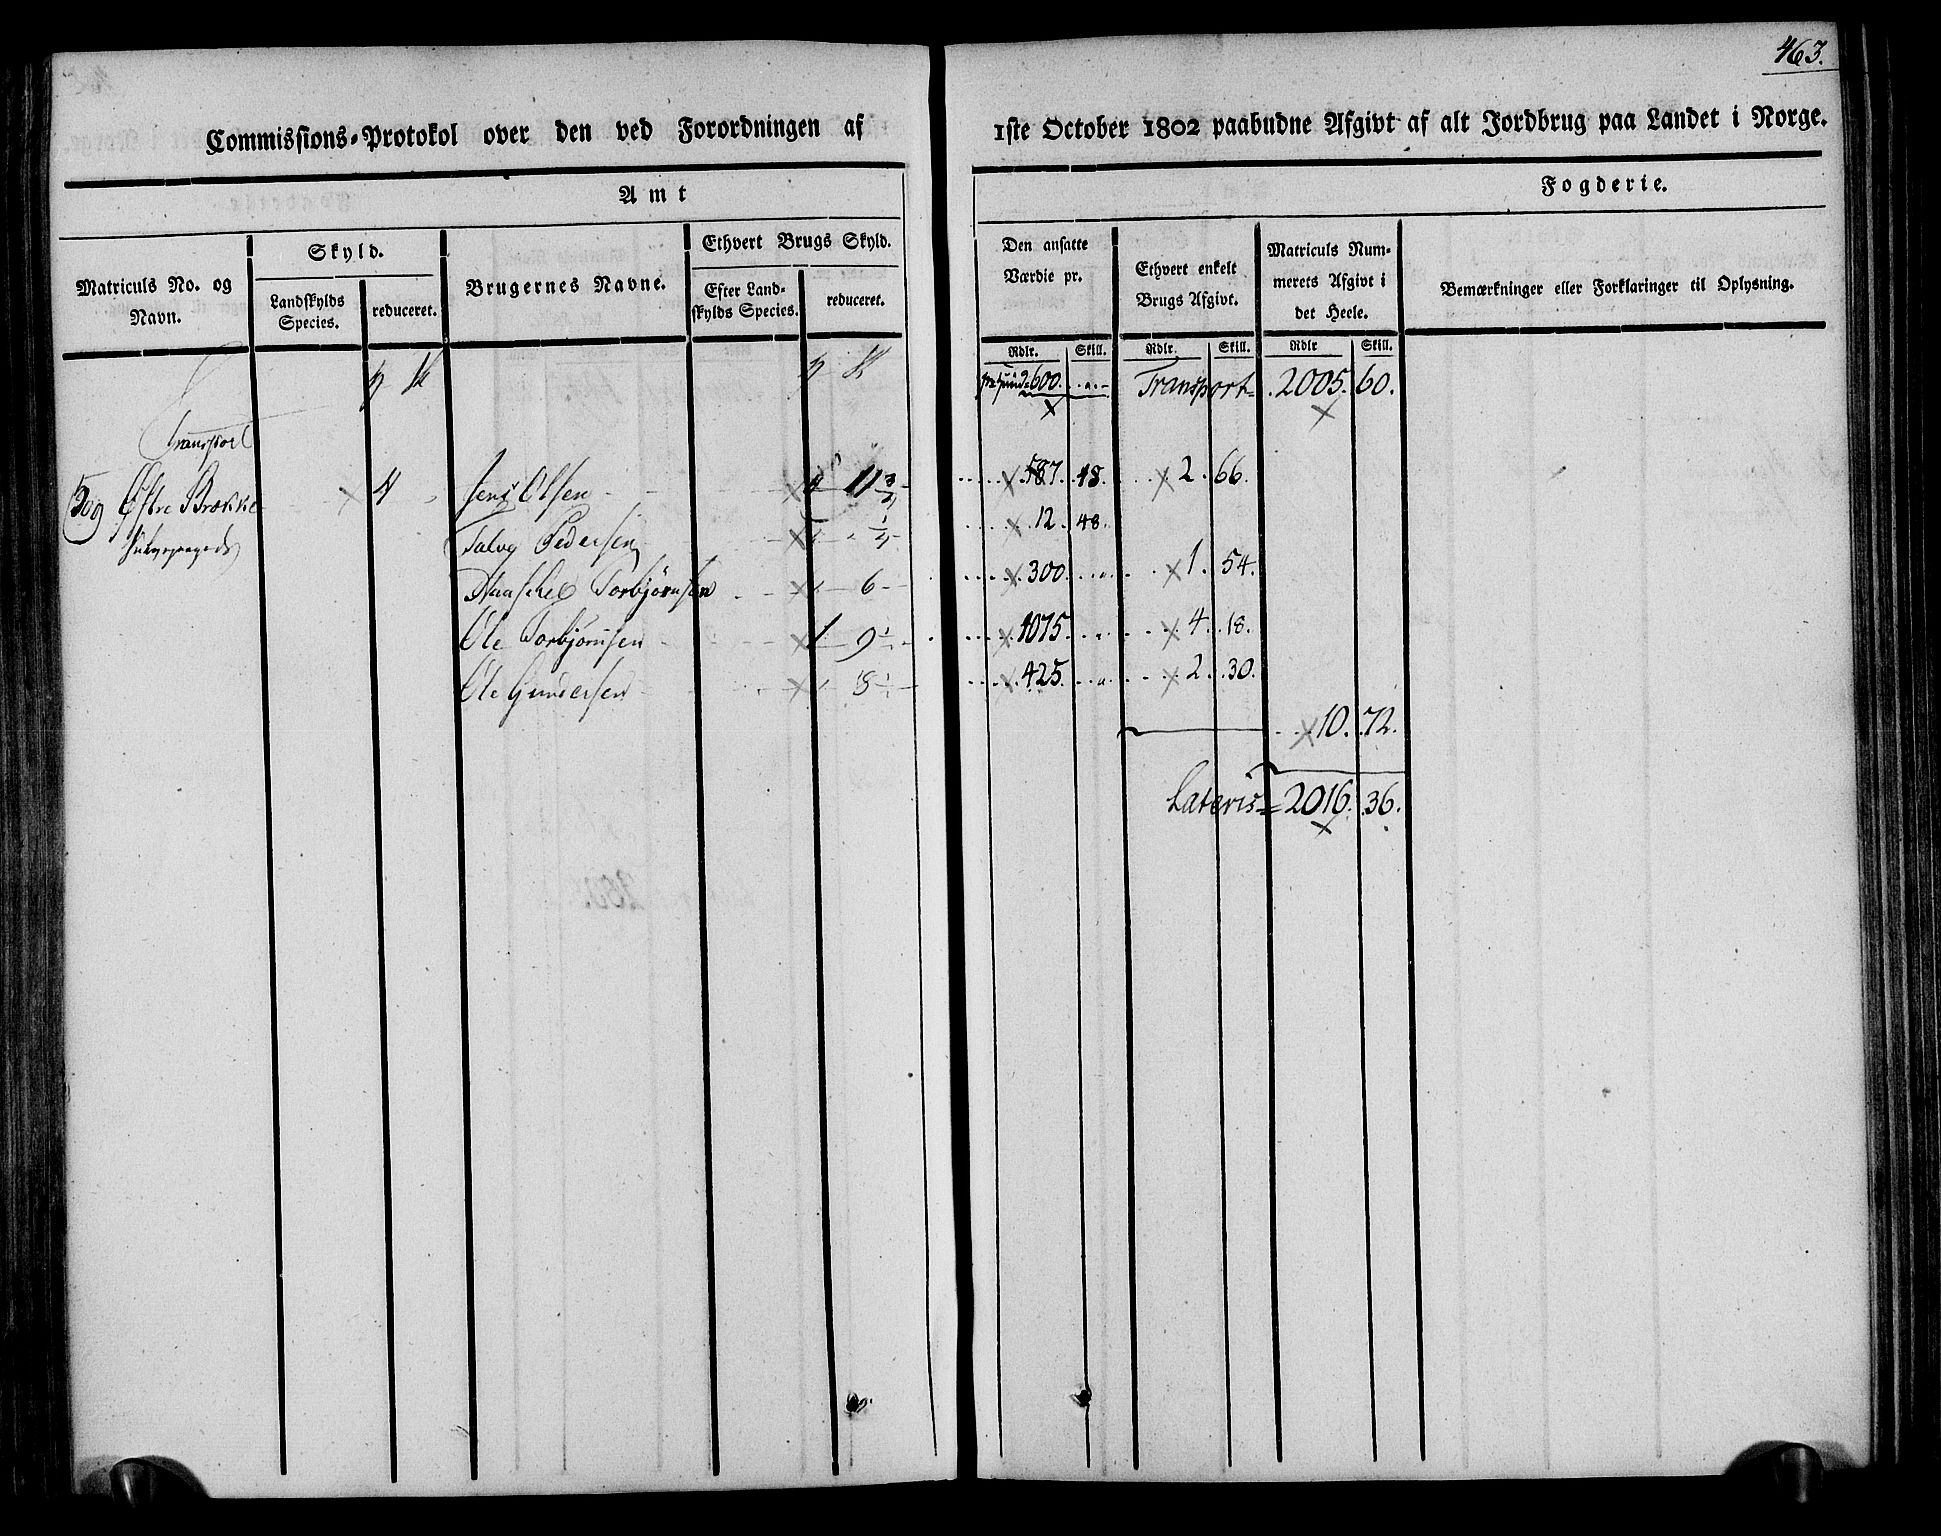 463.
Commissions-Protokol over den ved Forordningen af 1ste October 1802 paabudne Afgivt af alt Jordbrug paa Landet i Norge.
Amt Fogderie.
Matriculs No. og Navn.
Skyld.
Landskylds Species.
reduceret.
Brugernes Navne.
Ethvert Brugs Skyld.
Efter Landskylds Species.
reduceret.
Den ansatte Værdie pr.
Ethvert enkelt Brugs Afgivt.
Matriculs Nummerets Afgivt i det Heele.
Bemærkninger eller Forklaringer til Oplysning.
Rdlr. Skill. Rdlr. Skill. Rdlr Skill.
600. Transport 2005. 60.
Transport
509 Østre Brække 4 Jens Olsen 11 587. 48. 2. 66.
Talvg Pedersen 12. 48.
Torbjørnsen 6 300. 1. 54.
Ole Torbjørnsen 1 9 1075. 4. 18.
Ole Gundersen 8 425. 2. 30.
10. 72.
Lateris 2016. 36.